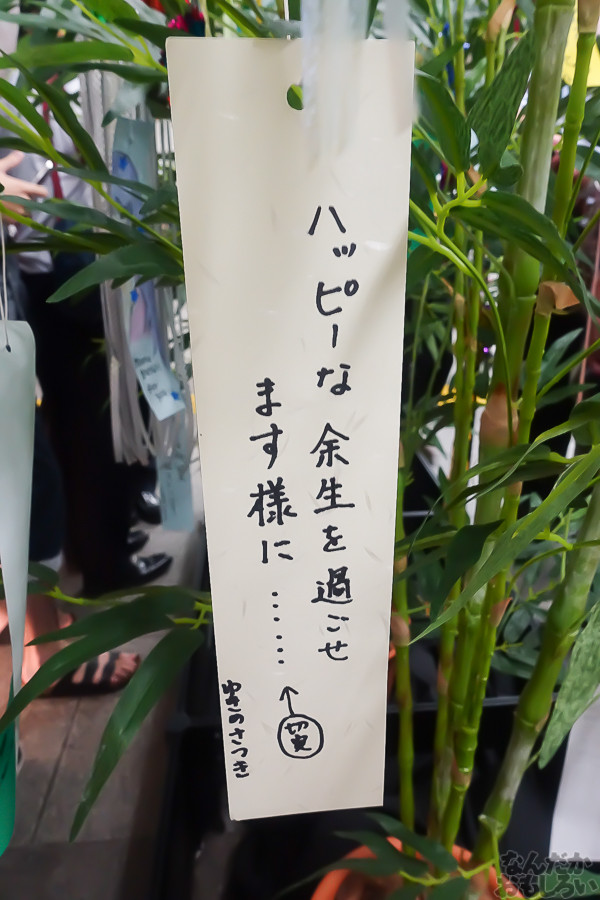 ハッピーな余生を過ごせ
ます様に……
↑
切実
ゆきのさつき
なんだか
おもしろい